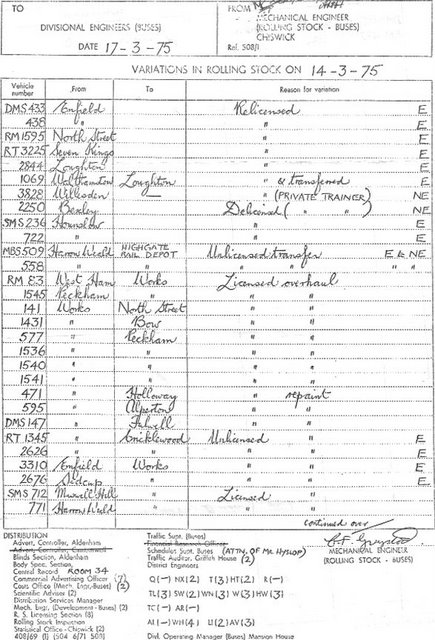 TO
DIVISIONAL ENGINEERS (BUSES)
DATE 17-3-75
FROM
MECHANICAL ENGINEER
(ROLLING STOCK - BUSES)
CHISWICK
Ref. 508/1
VARIATIONS IN ROLLING STOCK ON 14-3-75
Vehicle number From To Reason for variation
DMS 433 Enfield Relicensed E
438 " " E
RM 1595 North Street " E
RT 3225 Seven Kings " E
2844 Loughton " E
1069 Walthamstow Loughton " & transferred E
3828 Willesden " (PRIVATE TRAINER) NE
2250 Bexley Delicensed ( " " ) NE
SMS 236 Hounslow " E
722 " " E
MBS 509 Harrow Weald HIGHGATE RAIL DEPOT Unlicensed transfer E & NE
558 " " " " " "
RM 83 West Ham Works Licensed overhaul
1545 Peckham " " "
141 Works North Street " "
1431 " Bow " "
577 " Peckham " "
1536 " " " "
1540 " " " "
1541 " " " "
471 " Holloway " repaint
595 " Alperton " "
DMS 147 " Fulwell " "
RT 1345 " Cricklewood Unlicensed " E
2626 " " " " E
3310 Enfield Works " " E
2676 Sidcup " " " E
SMS 712 Muswell Hill " Licensed "
771 Harrow Weald " " "
continued over
DISTRIBUTION
Advert. Controller, Aldenham
Blinds Section, Aldenham
Body Spec. Section
Central Record ROOM 34
Commercial Advertising Officer (7)
Cours Office (Mech. Engr.-Buses) (2)
Scientific Adviser (2)
Distribution Services Manager
Mech. Engr. (Development - Buses) (2)
R. S. Licensing Section (8)
Rolling Stock Inspection
Statistical Office - Chiswick (2)
408/69 (I) (504 6/71 505)
Traffic Supt. (Buses)
Financial Research Officer
Schedules Supt. Buses (ATTN. OF MR HYSLOP)
Traffic Auditor, Griffith House (2)
District Engineers
Q(-) NX(2) T(3) HT(2) R(-)
TL(3) SW(2) WN(3) W(3) HW(3)
TC(-) AR(-)
AI(-) WH(4) LI(2) AV(3)
Divl. Operating Manager (Buses) Mansion House
MECHANICAL ENGINEER
(ROLLING STOCK - BUSES)